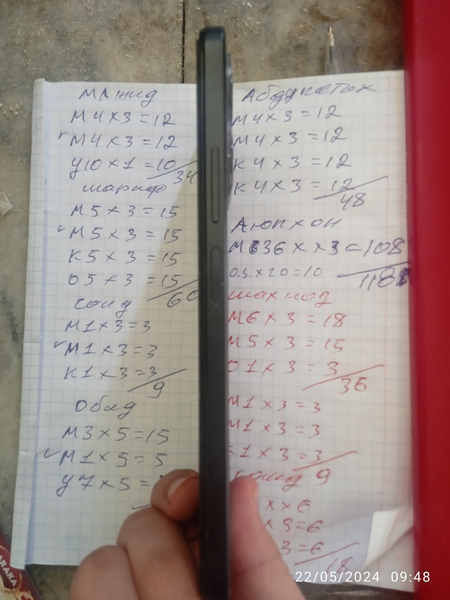 Мажид
М4×3=12
М4×3=12
У10×1=10
34
шариф
М5×3=15
М5×3=15
К5×3=15
О5×3=15
60
саид
М1×3=3
М1×3=3
К1×3=3
9
Обид
М3×5=15
М1×5=5
У7×5=
Абдукаттох
М4×3=12
М4×3=12
К4×3=12
К4×3=12
48
Аюпхон
М636××3=108
0.5×20=10
118
шахзод
М6×3=18
М5×3=15
О1×3=3
36
М1×3=3
М1×3=3
К1×3=3
9
××6
×3=6
3=6
18
22/05/2024 09:48